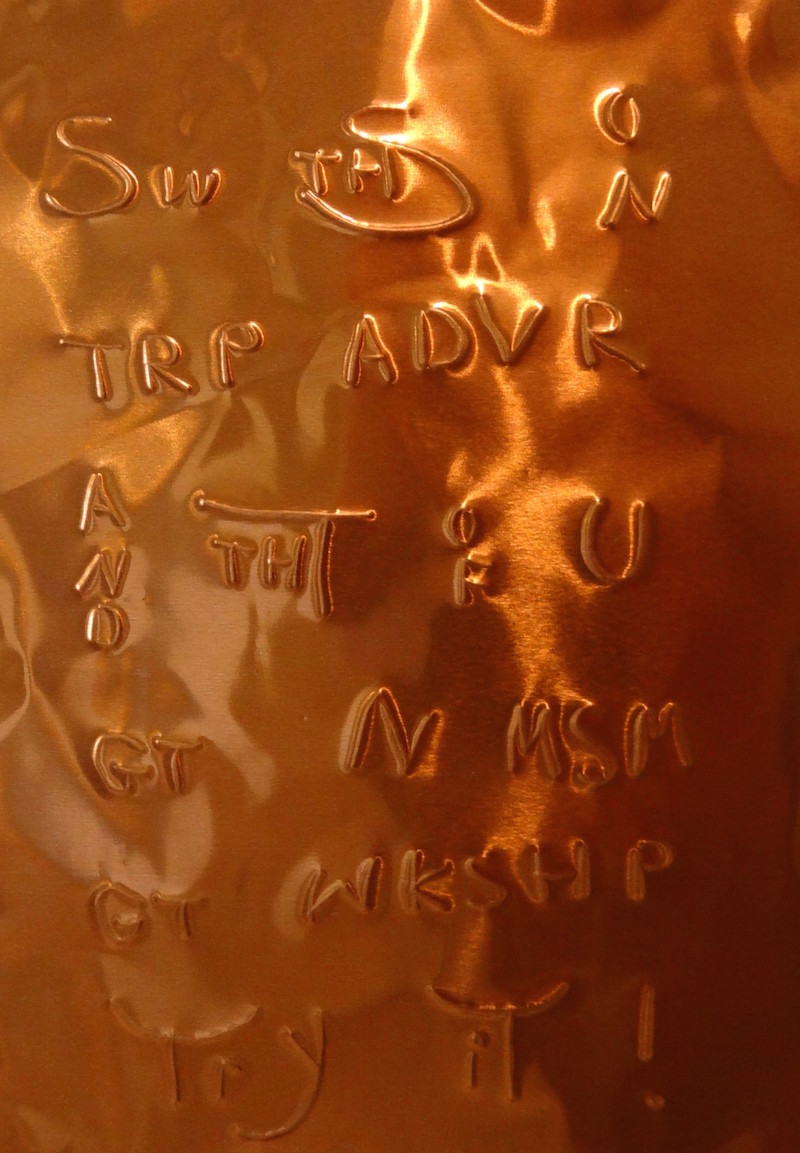 Sw THS ON
TRP ADVR
AND THT OF U
GT N MSM
GT WKSHP
Try iT !